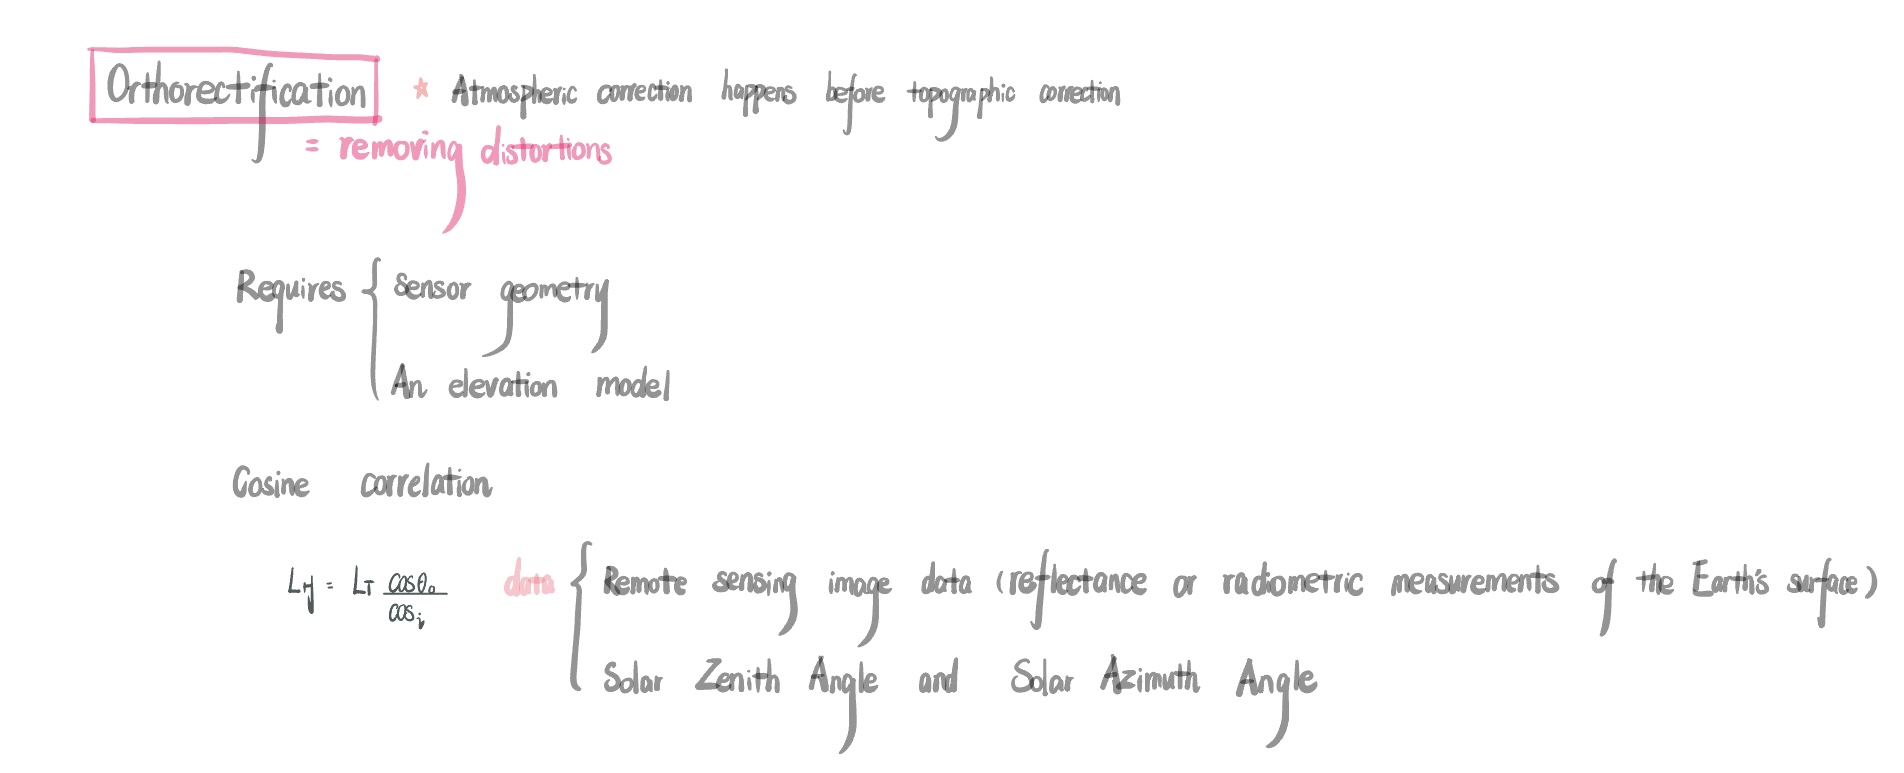 Orthorectification * Atmospheric correction happens before topographic correction
= removing distortions
Requires { Sensor geometry
An elevation model
Cosine correlation
LH = LT cosθ₀ / cos i data { Remote sensing image data (reflectance or radiometric measurements of the Earth's surface)
Solar Zenith Angle and Solar Azimuth Angle